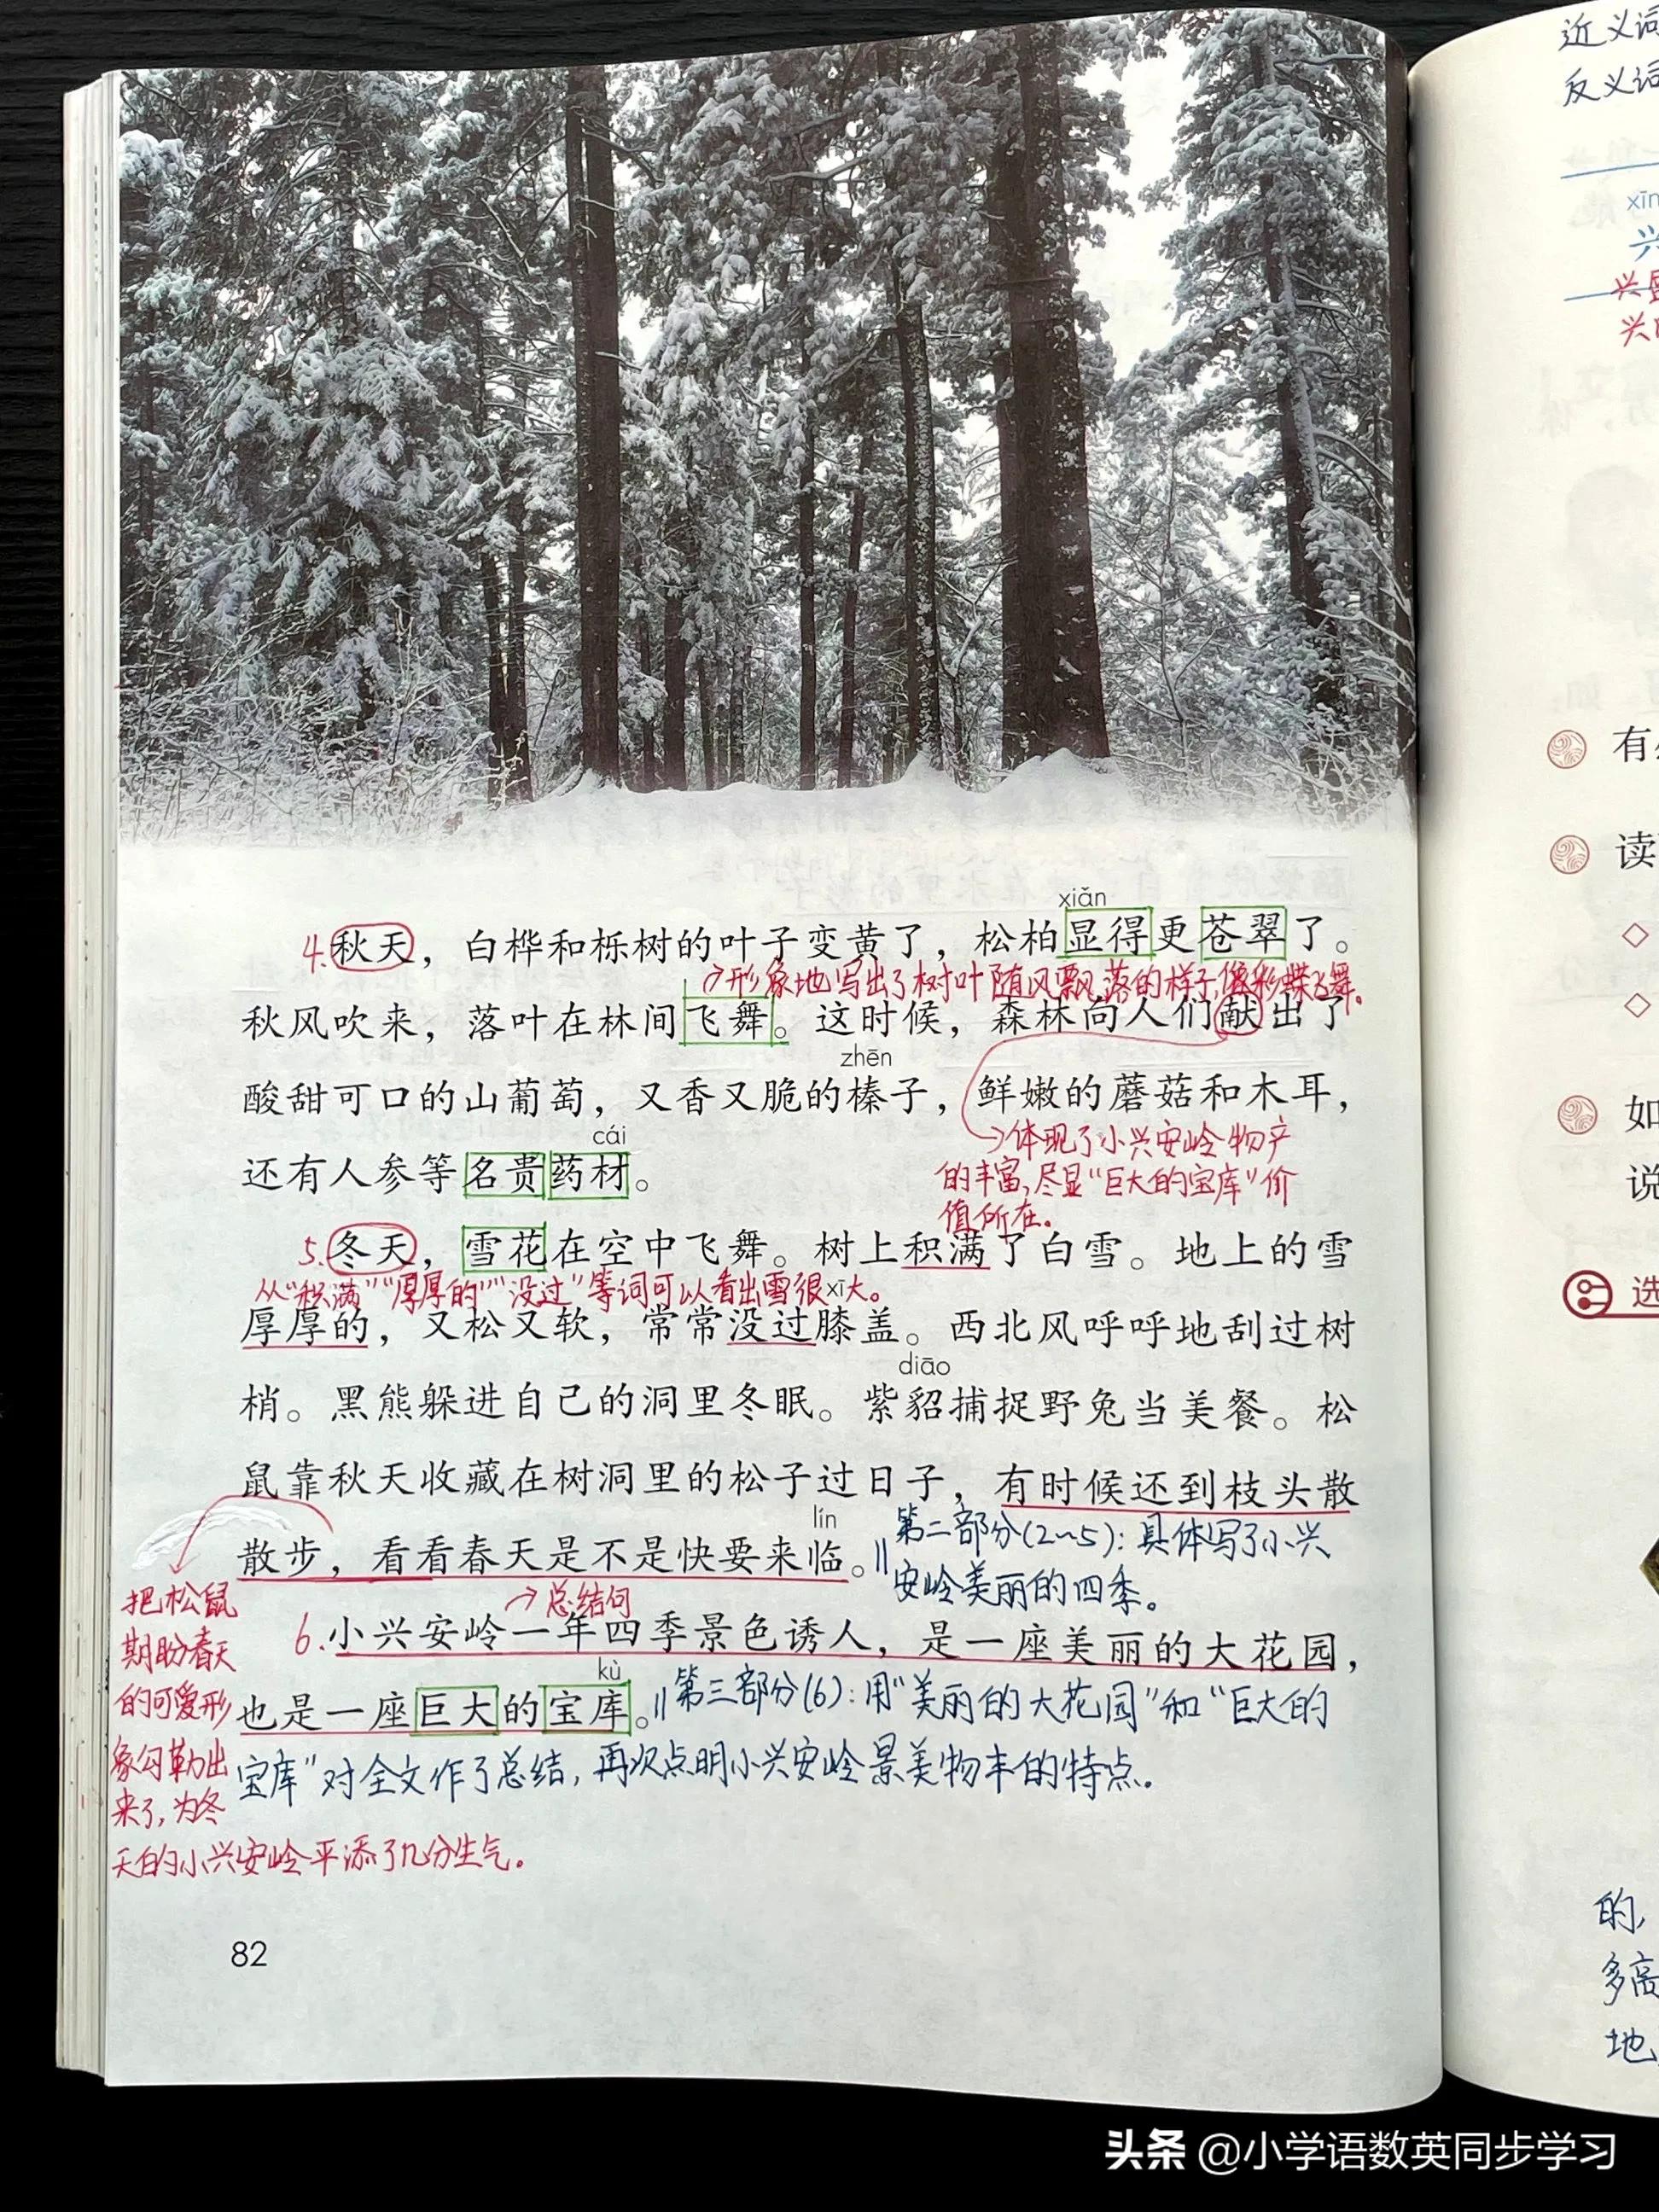 xiǎn
4.秋天，白桦和栎树的叶子变黄了，松柏显得更苍翠了。
→形象地写出了树叶随风飘落的样子,像彩蝶飞舞。
秋风吹来，落叶在林间飞舞。这时候，森林向人们献出了
zhēn
酸甜可口的山葡萄，又香又脆的榛子，鲜嫩的蘑菇和木耳，
cái
还有人参等名贵药材。
→体现了小兴安岭物产
的丰富,尽显“巨大的宝库”价
值所在。
5.冬天，雪花在空中飞舞。树上积满了白雪。地上的雪
从“积满”“厚厚的”“没过”等词可以看出雪很大。
xī
厚厚的，又松又软，常常没过膝盖。西北风呼呼地刮过树
diāo
梢。黑熊躲进自己的洞里冬眠。紫貂捕捉野兔当美餐。松
鼠靠秋天收藏在树洞里的松子过日子，有时候还到枝头散
lín
散步，看看春天是不是快要来临。
‖第二部分(2~5)：具体写了小兴
安岭美丽的四季。
→总结句
6.小兴安岭一年四季景色诱人，是一座美丽的大花园，
kù
也是一座巨大的宝库。
‖第三部分(6)：用“美丽的大花园”和“巨大的
宝库”对全文作了总结,再次点明小兴安岭景美物丰的特点。
把松鼠
期盼春天
的可爱形
象勾勒出
来了,为冬
天的小兴安岭平添了几分生气。
82
近义词
反义词
xīn
兴
有
读
◇
◇
如
说
选
的,
多高
地
头条 @小学语数英同步学习